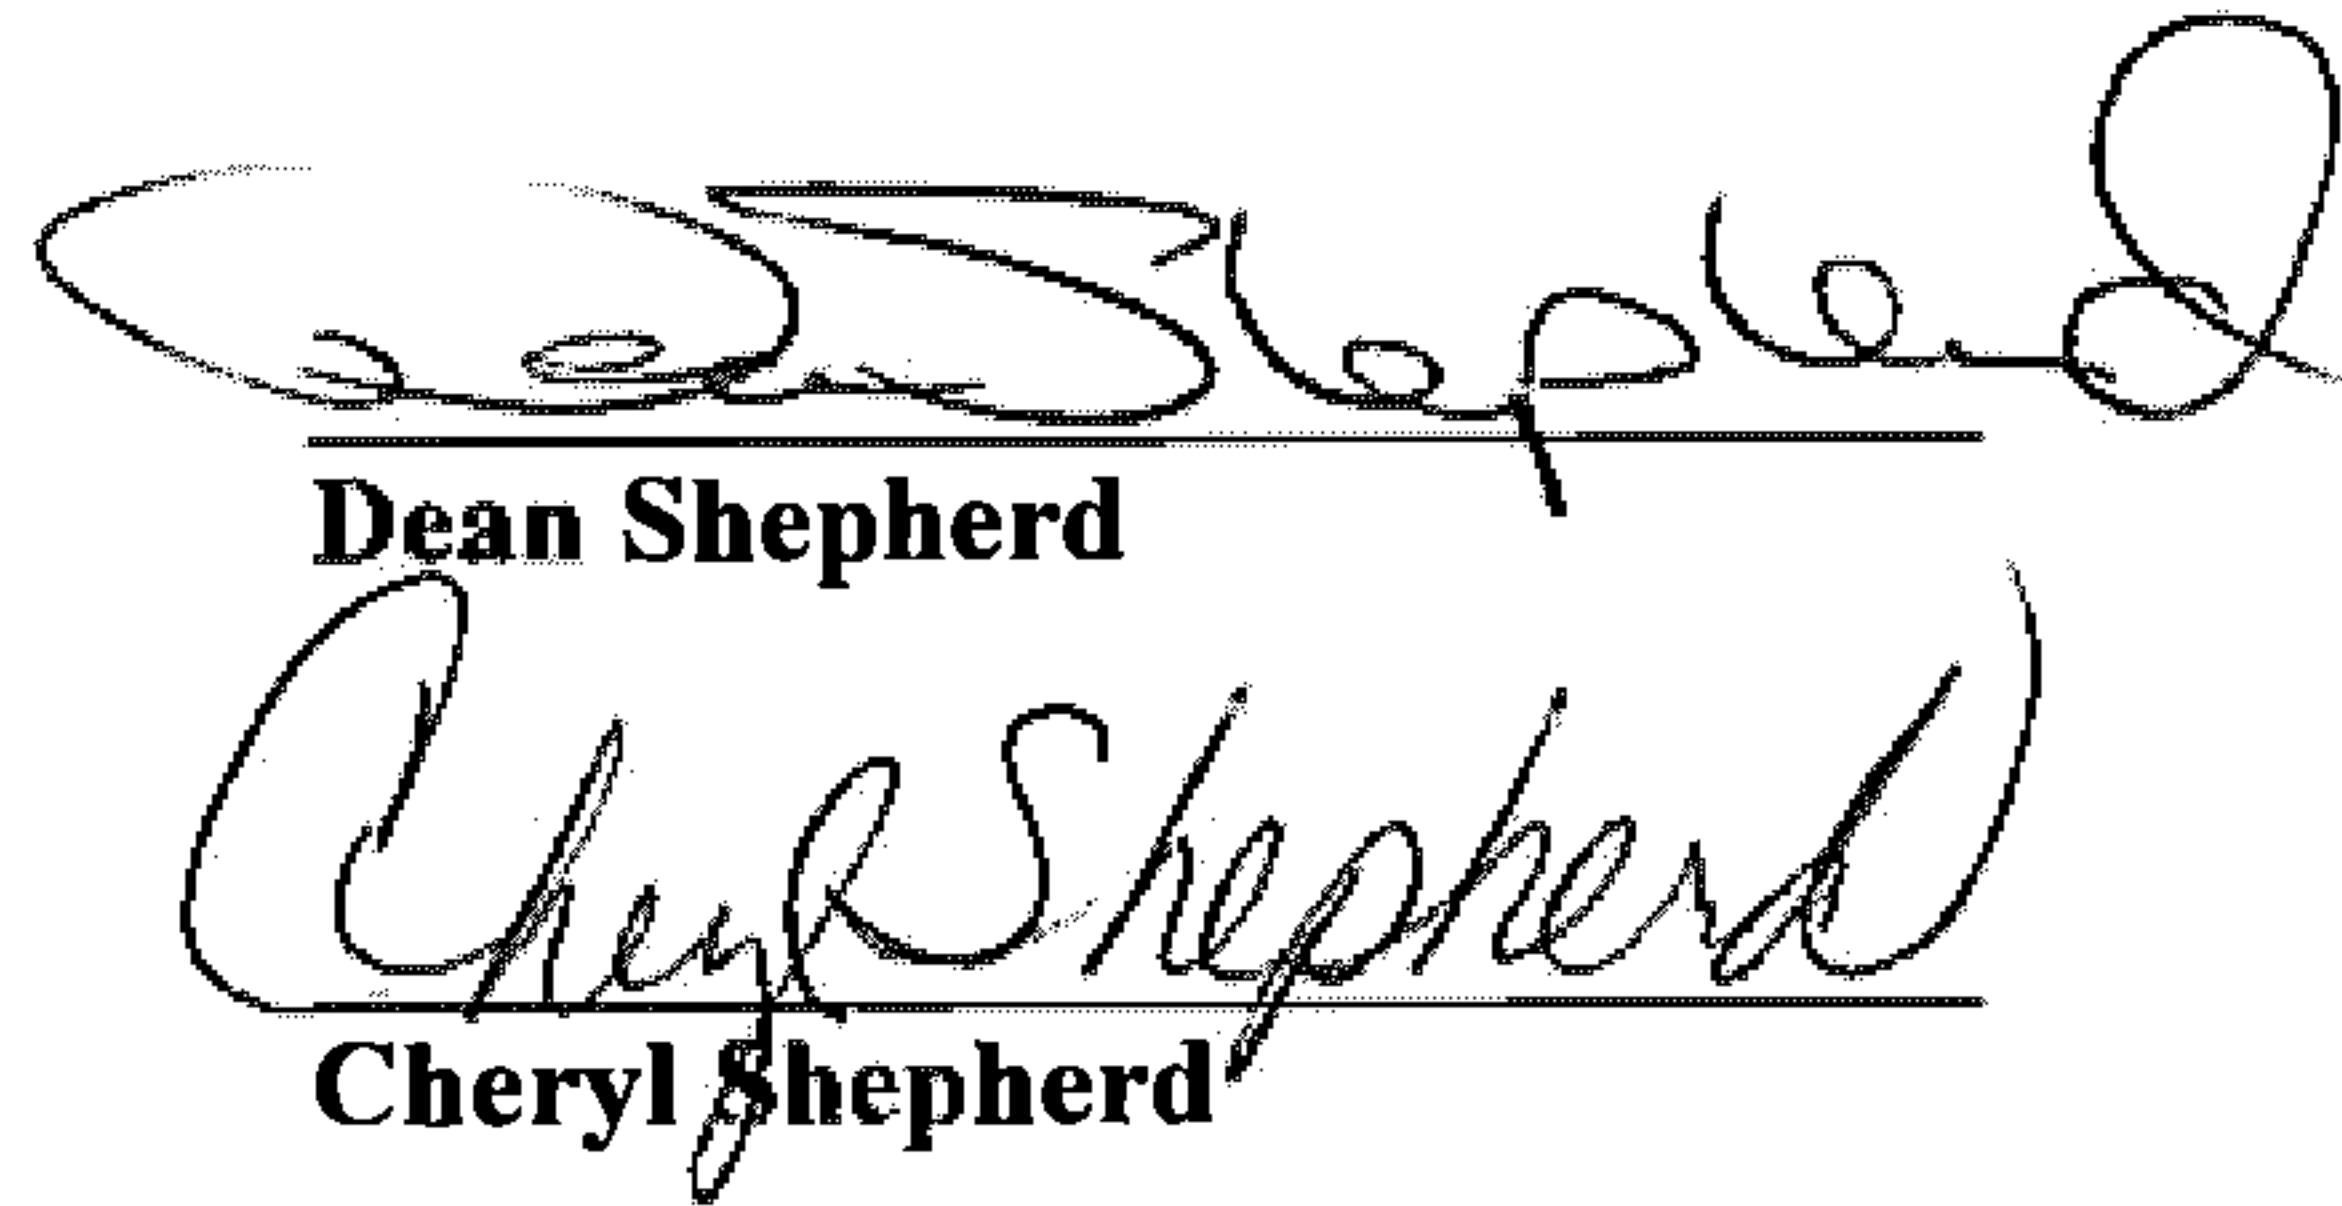 Dean Shepherd
Dean Shepherd
Cheryl Shepherd
Cheryl Shepherd